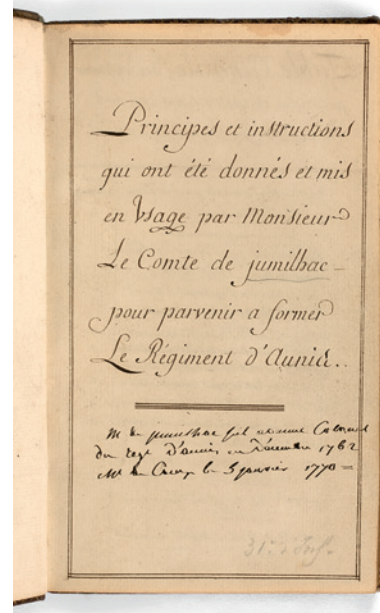 Principes et instructions
qui ont été donnés et mis
en Usage par Monsieur
Le Comte de jumilhac
pour parvenir a former
Le Régiment d'Aunis..
M de jumilhac fut nommé Colonel
du regt d'aunis en Décembre 1762
Mal de Camp le 3 janvier 1770 =
31e d'Inf.